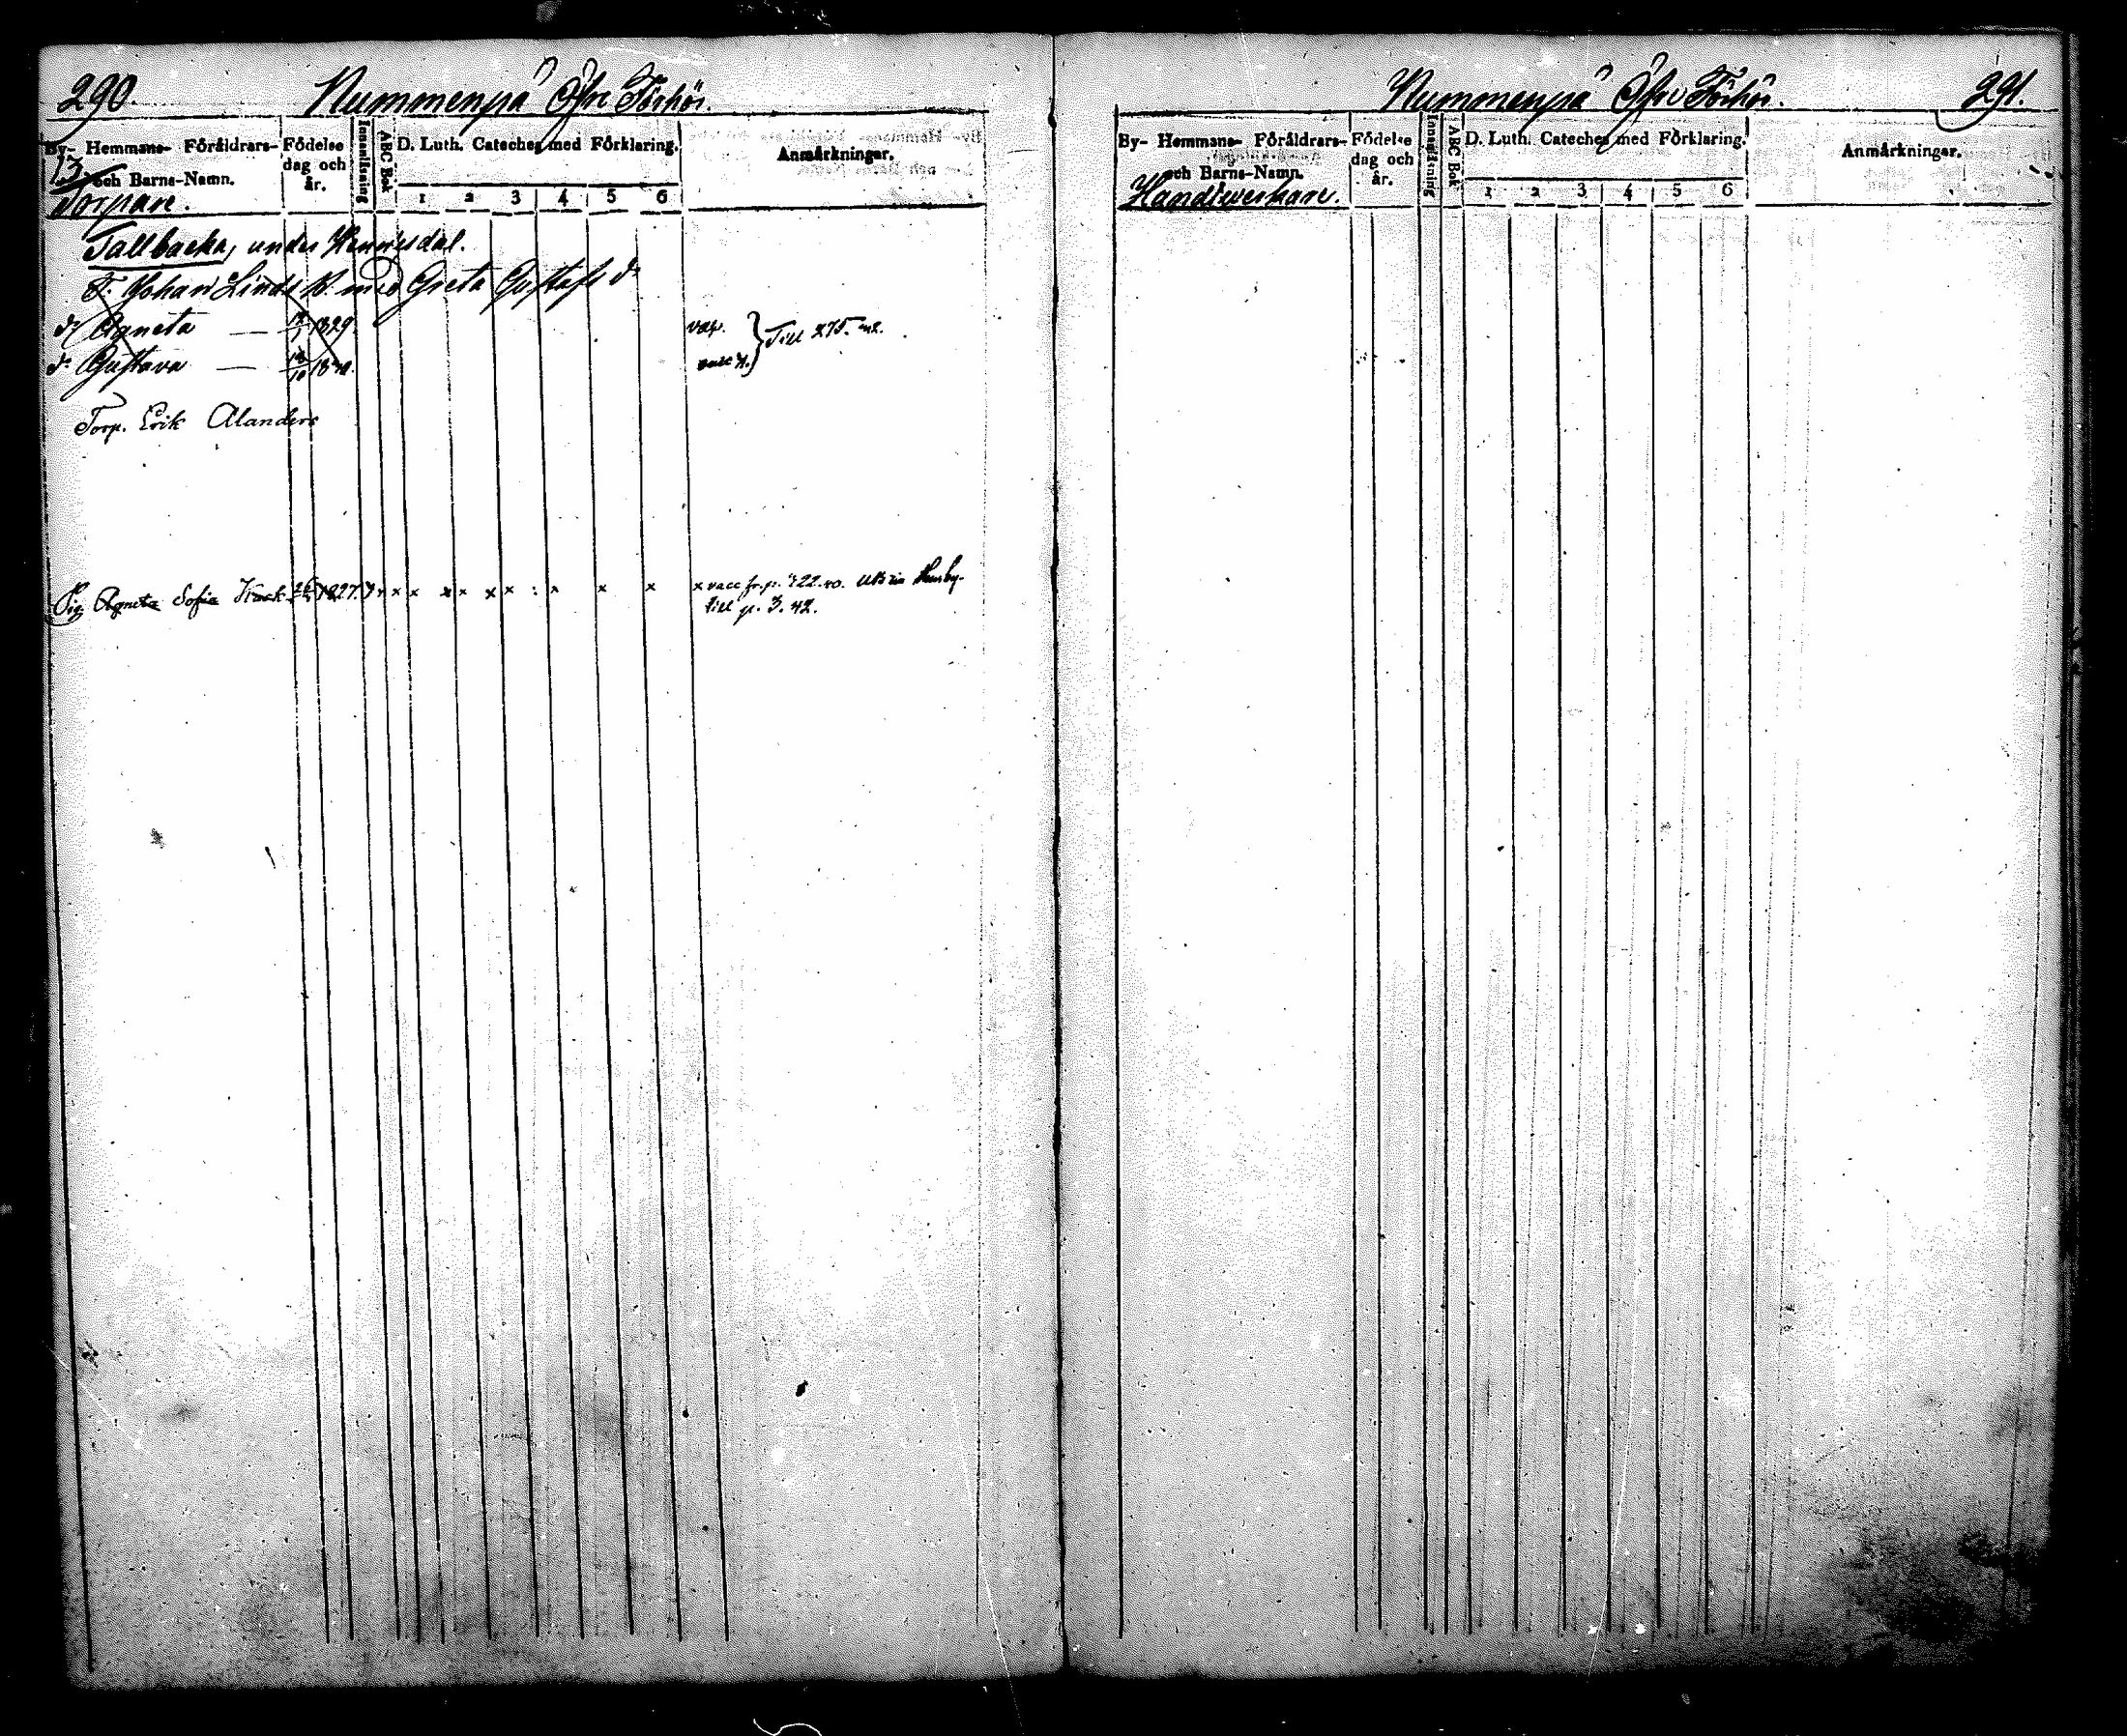 290. Nummenpå Öfre Förhör.
By- Hemmans- Föräldrars- och Barns-Namn.
Födelse dag och år.
Innanläsning
ABC Bok
D. Luth. Cateches med Förklaring.
1 2 3 4 5 6
Anmärkningar.
13
Torpare.
Tallbacka, under
T. Johan Linds med Greta Gustafs dr
dr Agneta — 1829
dr Gustava —
Till 275. 42.
Torp. Erik Alanders
Pig. Agneta Sofia 1827 x x x x x x x x x vacc fr. p. 322. 40.
till p. 3. 42.
Nummenpå Öfre Förhör. 291.
By- Hemmans- Föräldrars- och Barns-Namn.
Födelse dag och år.
Innanläsning
ABC Bok
D. Luth. Cateches med Förklaring.
1 2 3 4 5 6
Anmärkningar.
Handtverkare.